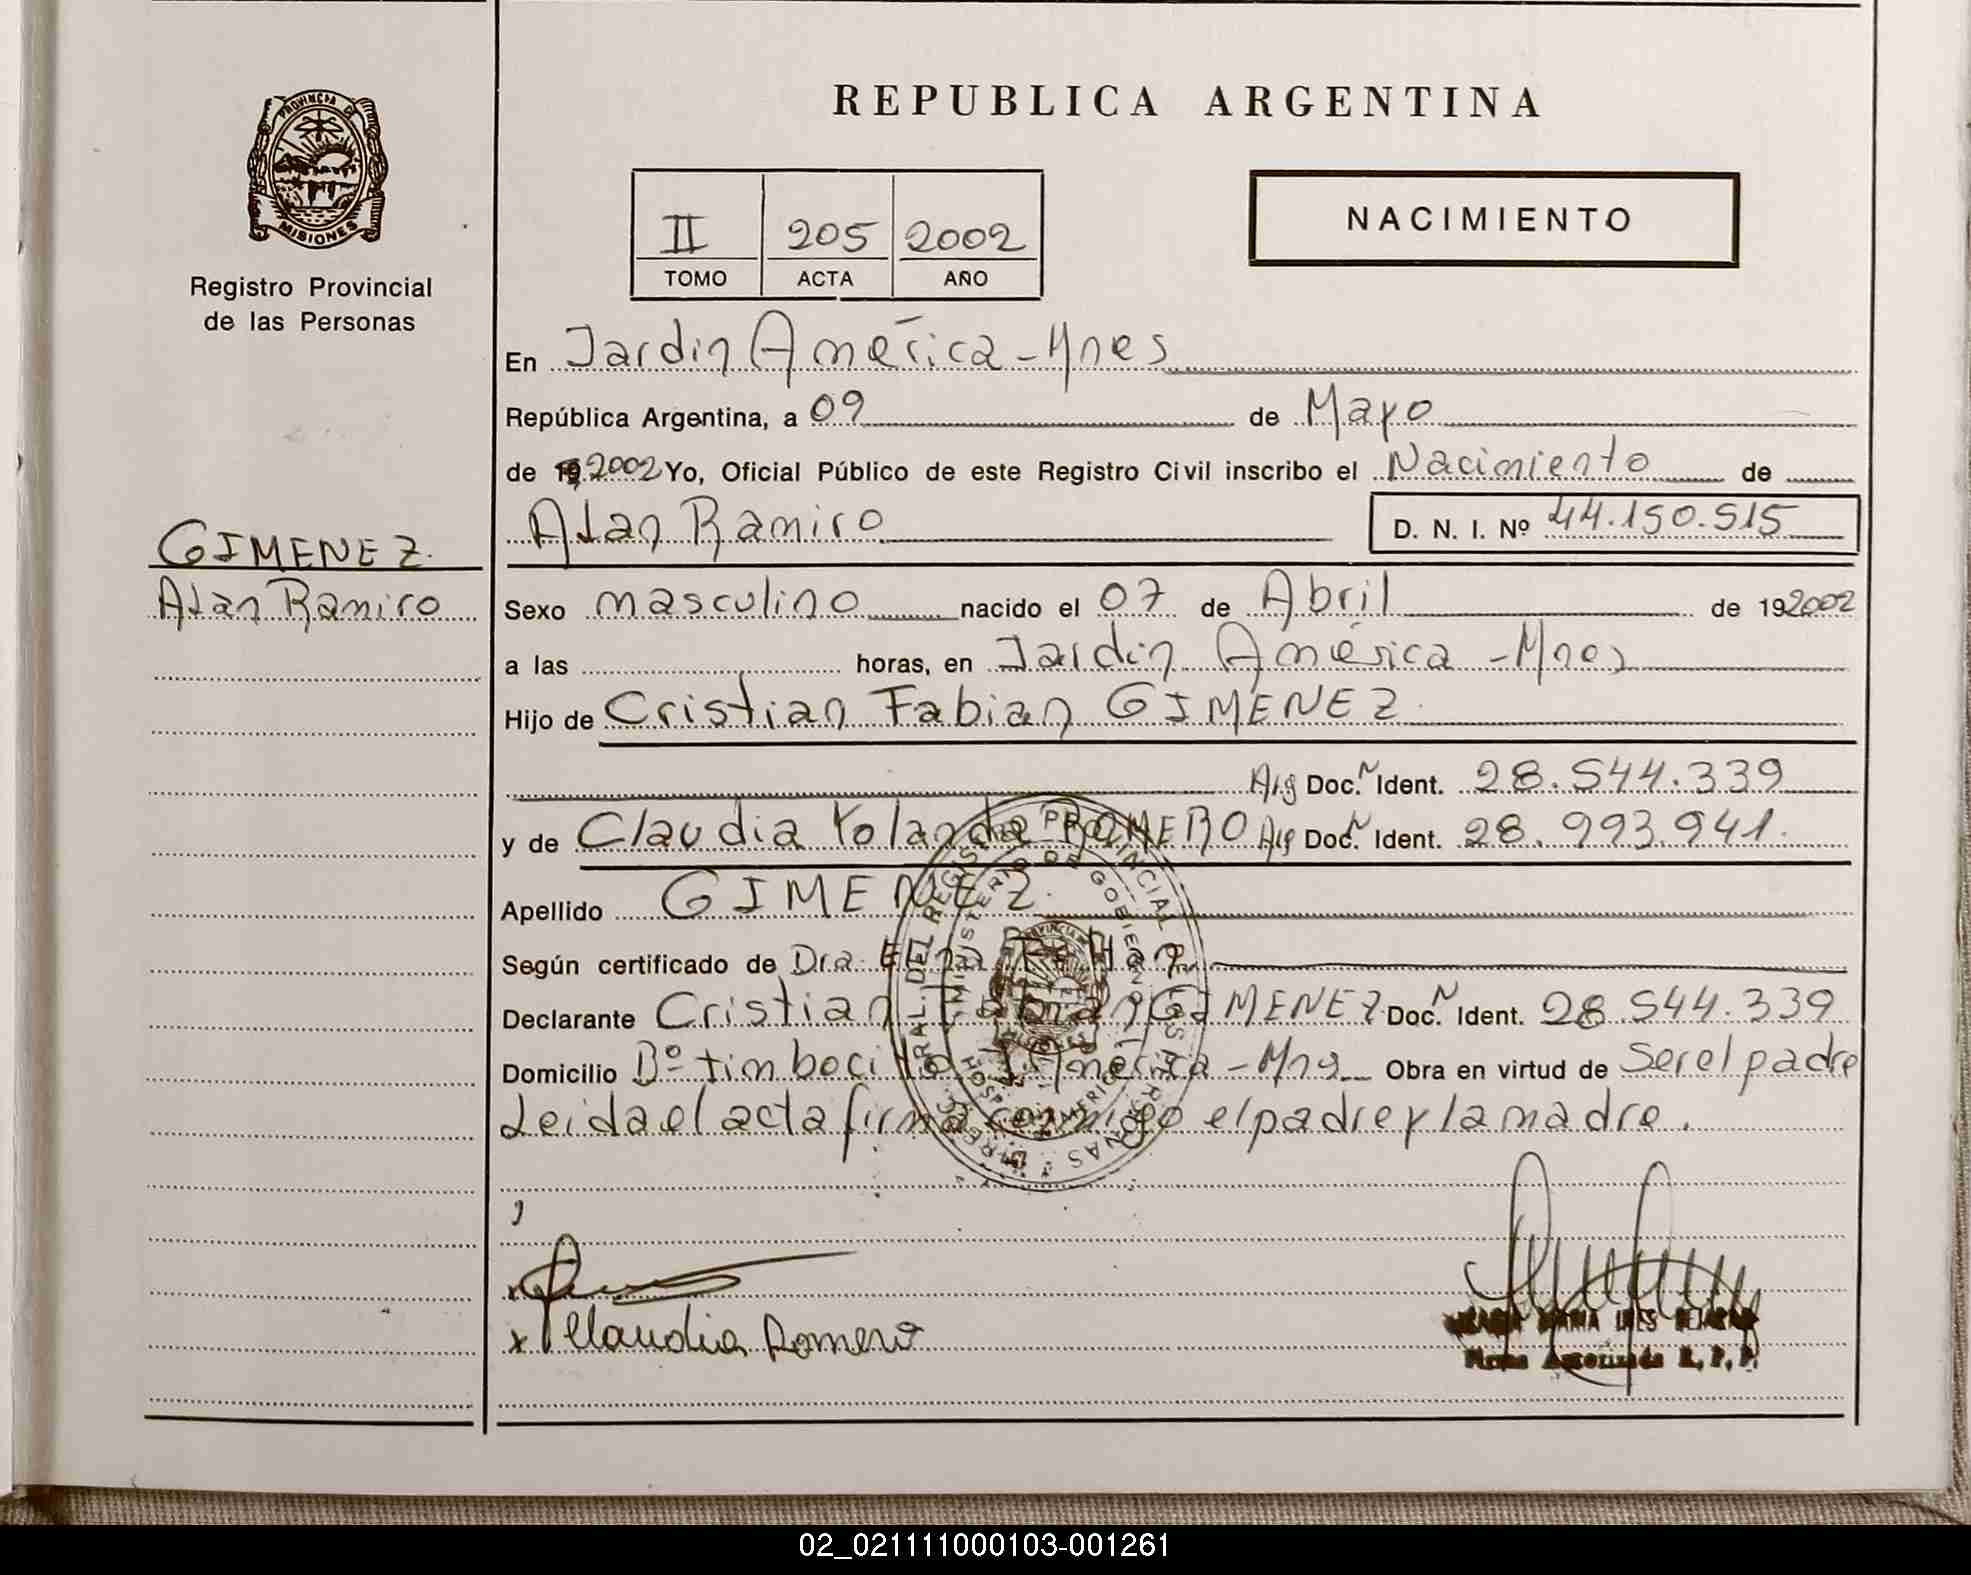 PROVINCIA DE
MISIONES
Registro Provincial
de las Personas
GIMENEZ.
Alan Ramiro
REPUBLICA ARGENTINA
II 205 2002
TOMO ACTA AÑO
NACIMIENTO
En Jardin América - Mnes
República Argentina, a 09 de Mayo
de 19 2002 Yo, Oficial Público de este Registro Civil inscribo el Nacimiento de
Alan Ramiro D. N. I. Nº 44.150.515
Sexo masculino nacido el 07 de Abril de 19 2002
a las horas, en Jardin América - Mnes
Hijo de Cristian Fabian GIMENEZ
Arg Doc. N Ident. 28.544.339
y de Claudia Yolanda ROMERO Arg Doc. N Ident. 28.993.941.
Apellido GIMENEZ.
Según certificado de Dra.
Declarante Cristian Fabian GIMENEZ Doc. N Ident. 28.544.339
Domicilio Bº timbocito J. América - Mns Obra en virtud de Ser el padre
Leida el acta firma conmigo el padre y la madre.
x
x Claudia Romero
Firma Autorizada R. P. P.
02_021111000103-001261